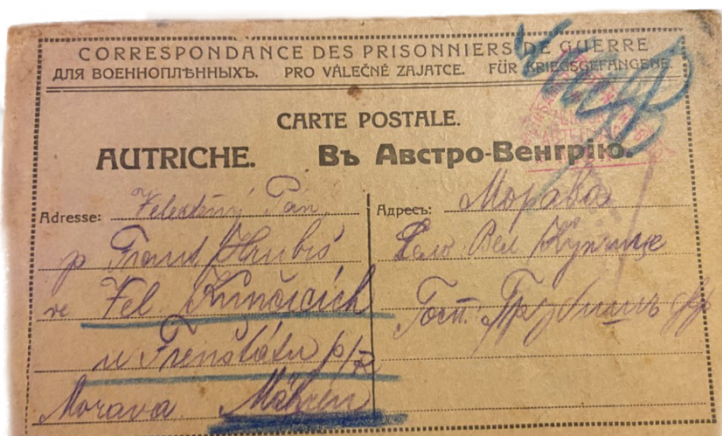 CORRESPONDANCE DES PRISONNIERS DE GUERRE
ДЛЯ ВОЕННОПЛѢННЫХЪ. PRO VÁLEČNÉ ZAJATCE. FÜR KRIEGSGEFANGENE
CARTE POSTALE.
AUTRICHE. Въ Австро-Венгрію.
Adresse: Velectěný Pan
p Frant Hrubiš
ve Vel Kunčicích
u Frenštátu p/R
Morava Mähren
Адресъ: Морава
Село Вел Кунчице
Госп. Грубишъ Фр